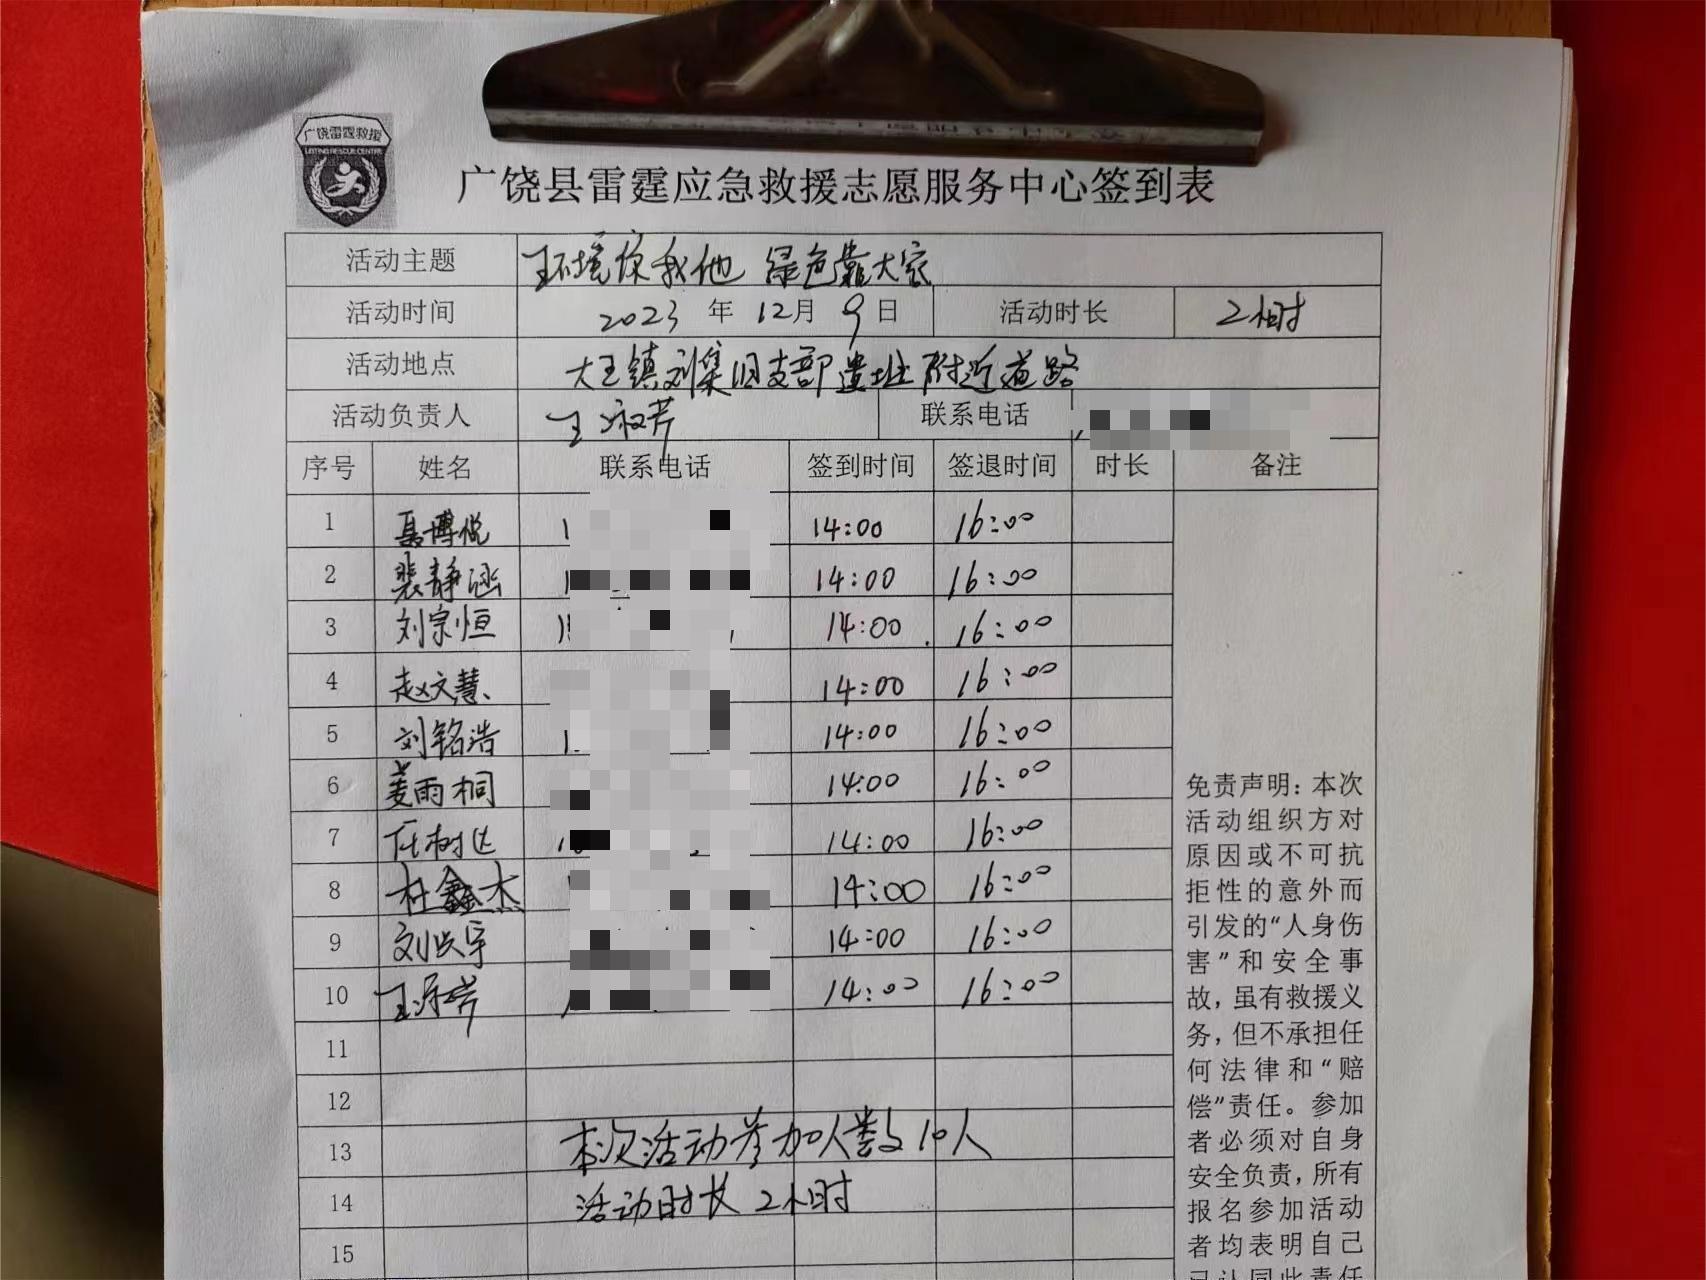 广饶雷霆救援
广饶县雷霆应急救援志愿服务中心签到表
活动主题 环境你我他 绿色靠大家
活动时间 2023 年 12月 9日 活动时长 2小时
活动地点 大王镇刘集旧支部遗址附近道路
活动负责人 王淑芹 联系电话
序号 姓名 联系电话 签到时间 签退时间 时长 备注
1 聂博悦 14:00 16:00
2 裴静涵 14:00 16:00
3 刘宗恒 14:00 16:00
4 赵文慧 14:00 16:00
5 刘铭浩 14:00 16:00
6 姜雨桐 14:00 16:00
7 任树达 14:00 16:00
8 杜鑫杰 14:00 16:00
9 刘兴宇 14:00 16:00
10 14:00 16:00
11
12
13 本次活动参加人数10人
14 活动时长 2小时
15
免责声明：本次
活动组织方对
原因或不可抗
拒性的意外而
引发的“人身伤
害”和安全事
故，虽有救援义
务，但不承担任
何法律和“赔
偿”责任。参加
者必须对自身
安全负责，所有
报名参加活动
者均表明自己
已认同此责任